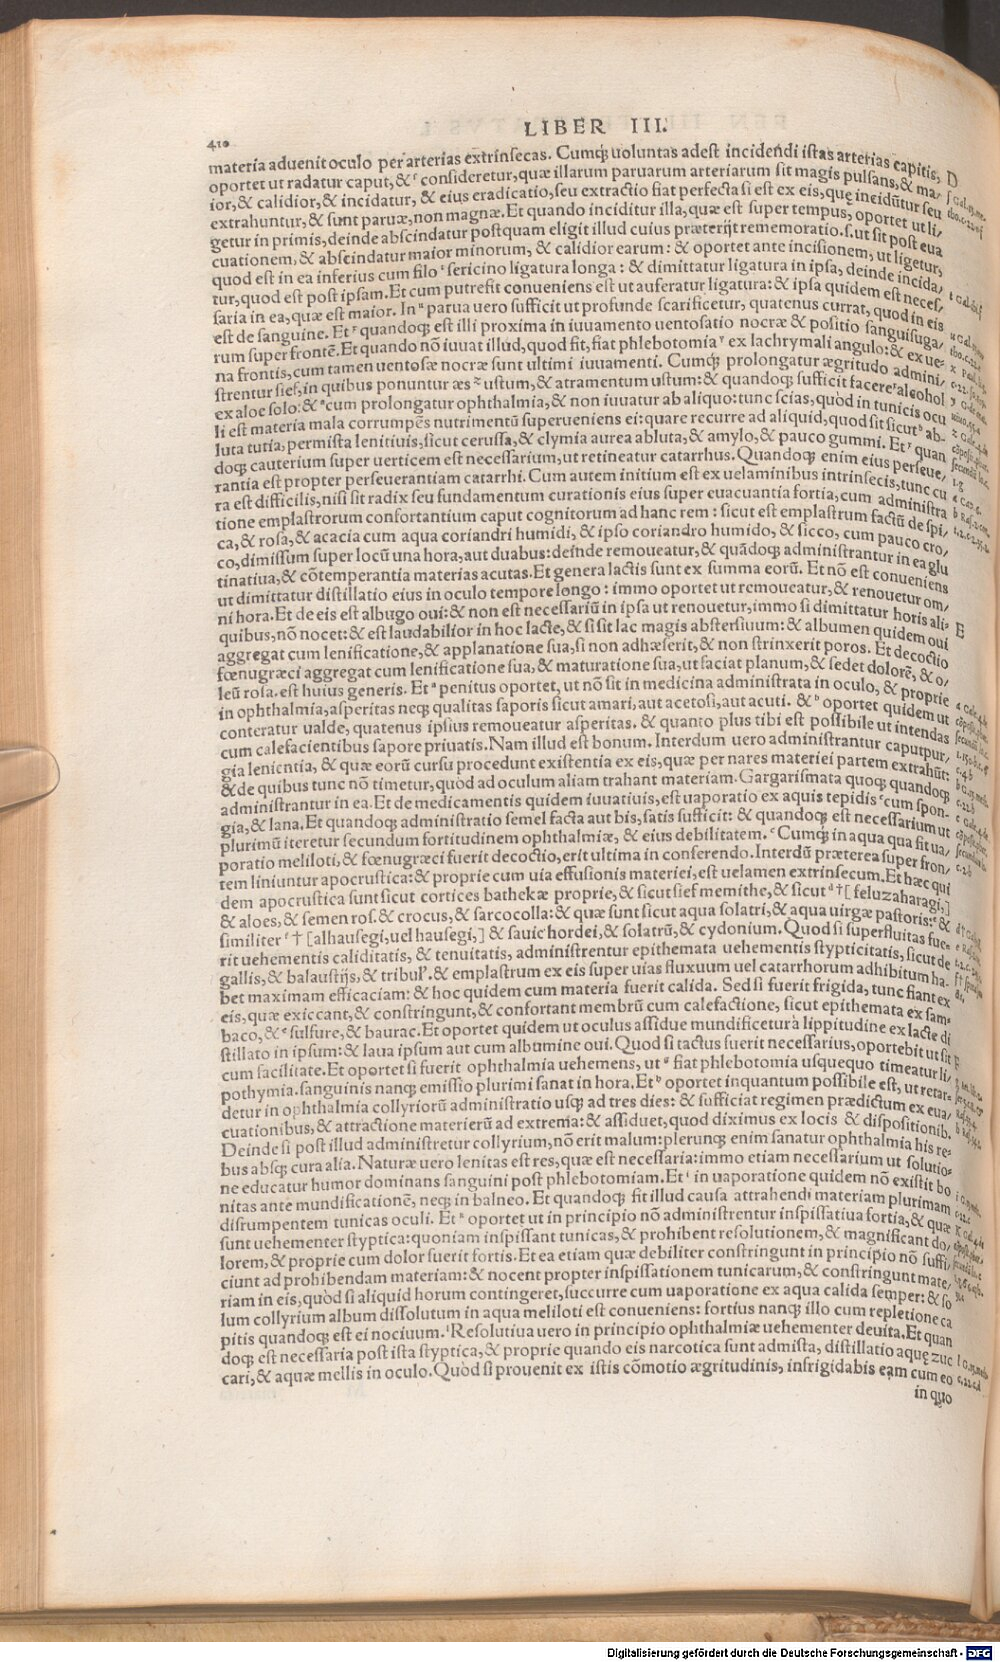 410
LIBER III.
materia aduenit oculo per arterias extrinsecas. Cumq; uoluntas adest incidendi istas arterias capitis,
oportet ut radatur caput, & ſ consideretur, quæ illarum paruarum arteriarum sit magis pulsans, & ma-
ior, & calidior, & incidatur, & eius eradicatio, seu extractio fiat perfecta si est ex eis, quę incidūtur seu
extrahuntur, & sunt paruæ, non magnæ. Et quando inciditur illa, quæ est super tempus, oportet ut li/
getur in primis, deinde abscindatur postquam eligit illud cuius præterijt rememoratio. s. ut sit post eua
cuationem, & abscindatur maior minorum, & calidior earum: & oportet ante incisionem, ut ligetur,
quod est in ea inferius cum filo ᵗ sericino ligatura longa: & dimittatur ligatura in ipsa, deinde incida/
tur, quod est post ipsam. Et cum putrefit conueniens est ut auferatur ligatura: & ipsa quidem est neces/
saria in ea, quæ est maior. In ᵘ parua uero sufficit ut profunde scarificetur, quatenus currat, quod in eis
est de sanguine. Et quandoq; est illi proxima in iuuamento uentosatio nocræ & positio sanguisuga/
rum super frontē. Et quando nō iuuat illud, quod fit, fiat phlebotomia ʸ ex lachrymali angulo: & ex ue/
na frontis, cum tamen uentosæ nocræ sunt ultimi iuuamenti. Cumq; prolongatur ægritudo admini/
strentur sief, in quibus ponuntur æs ᶻ ustum, & atramentum ustum: & quandoq; sufficit facere alcohol
ex aloe solo: & ᵃ cum prolongatur ophthalmia, & non iuuatur ab aliquo: tunc scias, quòd in tunicis ocu
li est materia mala corrumpēs nutrimentū superueniens ei: quare recurre ad aliquid, quod sit sicut ᵇ ab-
luta tutia, permista lenitiuis, sicut cerussa, & clymia aurea abluta, & amylo, & pauco gummi. Et quan
doq; cauterium super uerticem est necessarium, ut retineatur catarrhus. Quandoq; enim eius perseue/
rantia est propter perseuerantiam catarrhi. Cum autem initium est ex uelaminibus intrinsecis, tunc cu
ra est difficilis, nisi sit radix seu fundamentum curationis eius super euacuantia fortia, cum administra
tione emplastrorum confortantium caput cognitorum ad hanc rem: sicut est emplastrum factū de spi/
ca, & rosa, & acacia cum aqua coriandri humidi, & ipso coriandro humido, & sicco, cum pauco cro/
co, dimissum super locū una hora, aut duabus: deinde remoueatur, & quādoq; administrantur in ea glu
tinatiua, & cōtemperantia materias acutas. Et genera lactis sunt ex summa eorū. Et nō est conueniens
ut dimittatur distillatio eius in oculo tempore longo: immo oportet ut remoueatur, & renouetur om/
ni hora. Et de eis est albugo oui: & non est necessariū in ipsa ut renouetur, immo si dimittatur horis ali-
quibus, nō nocet: & est laudabilior in hoc lacte, & si sit lac magis abstersiuum: & albumen quidem oui
aggregat cum lenificatione, & applanatione sua, si non adhæserit, & non strinxerit poros. Et decoctio
fœnugræci aggregat cum lenificatione sua, & maturatione sua, ut faciat planum, & sedet dolorē, & o/
leū rosa. est huius generis. Et ᵃ penitus oportet, ut nō sit in medicina administrata in oculo, & proprie
in ophthalmia, asperitas neq; qualitas saporis sicut amari, aut acetosi, aut acuti. & ᵇ oportet quidem ut
conteratur ualde, quatenus ipsius remoueatur asperitas. & quanto plus tibi est possibile ut intendas
cum calefacientibus sapore priuatis. Nam illud est bonum. Interdum uero administrantur caputpur/
gia lenientia, & quæ eorū cursu procedunt existentia ex eis, quæ per nares materiei partem extrahūt:
& de quibus tunc nō timetur, quòd ad oculum aliam trahant materiam. Gargarismata quoq; quandoq;
administrantur in ea. Et de medicamentis quidem iuuatiuis, est uaporatio ex aquis tepidis ᶜ cum spon-
gia, & lana. Et quandoq; administratio semel facta aut bis, satis sufficit: & quandoq; est necessarium ut
plurimū iteretur secundum fortitudinem ophthalmiæ, & eius debilitatem. Cumq; in aqua qua fit ua/
poratio meliloti, & fœnugræci fuerit decoctio, erit ultima in conferendo. Interdū præterea super fron/
tem liniuntur apocrustica: & proprie cum uia effusionis materiei, est uelamen extrinsecum. Et hæc qui
dem apocrustica sunt sicut cortices bathekæ proprie, & sicut sief memithe, & sicut ᵈ † [feluzaharagi,]
& aloes, & semen ros. & crocus, & sarcocolla: & quæ sunt sicut aqua solatri, & aqua uirgæ pastoris: ᵉ &
similiter ᶠ † [alhausegi, uel hausegi,] & sauic hordei, & solatrū, & cydonium. Quod si superfluitas fue-
rit uehementis caliditatis, & tenuitatis, administrentur epithemata uehementis stypticitatis, sicut de
gallis, & balaustijs, & tribul'. & emplastrum ex eis super uias fluxuum uel catarrhorum adhibitum ha-
bet maximam efficaciam: & hoc quidem cum materia fuerit calida. Sed si fuerit frigida, tunc fiant ex
eis, quæ exiccant, & constringunt, & confortant membrū cum calefactione, sicut epithemata ex sam-
baco, & sulfure, & baurac. Et oportet quidem ut oculus assidue mundificetur à lippitudine ex lacte di
stillato in ipsum: & laua ipsum aut cum albumine oui. Quod si tactus fuerit necessarius, oportebit ut sit
cum facilitate. Et oportet si fuerit ophthalmia uehemens, ut ᵍ fiat phlebotomia usquequo timeatur li/
pothymia. sanguinis nanq; emissio plurimi sanat in hora. Et ʰ oportet inquantum possibile est, ut retar-
detur in ophthalmia collyriorū administratio usq; ad tres dies: & sufficiat regimen prædictum ex eua/
cuationibus, & attractione materierū ad extrema: & assiduet, quod diximus ex locis & dispositionib.
Deinde si post illud administretur collyrium, nō erit malum: plerunq; enim sanatur ophthalmia his re-
bus absq; cura alia. Naturæ uero lenitas est res, quæ est necessaria: immo etiam necessarium ut solutio-
ne educatur humor dominans sanguini post phlebotomiam. Et ⁱ in uaporatione quidem nō existit bo
nitas ante mundificationē, neq; in balneo. Et quandoq; fit illud causa attrahendi materiam plurimam
disrumpentem tunicas oculi. Et ᵏ oportet ut in principio nō administrentur inspissatiua fortia, & quæ
sunt uehementer styptica: quoniam inspissant tunicas, & prohibent resolutionem, & magnificant do/
lorem, & proprie cum dolor fuerit fortis. Et ea etiam quæ debiliter constringunt in principio nō suffi/
ciunt ad prohibendam materiam: & nocent propter inspissationem tunicarum, & constringunt mate/
riam in eis, quòd si aliquid horum contingeret, succurre cum uaporatione ex aqua calida semper: & so
lum collyrium album dissolutum in aqua meliloti est conueniens: fortius nanq; illo cum repletione ca
pitis quandoq; est ei nociuum. ˡ Resolutiua uero in principio ophthalmiæ uehementer deuita. Et quan
doq; est necessaria post ista styptica, & proprie quando eis narcotica sunt admista, distillatio aquę zuc
cari, & aquæ mellis in oculo. Quòd si prouenit ex istis cōmotio ægritudinis, infrigidabis eam cum eo
in quo
D
E
F
Digitalisierung gefördert durch die Deutsche Forschungsgemeinschaft - DFG